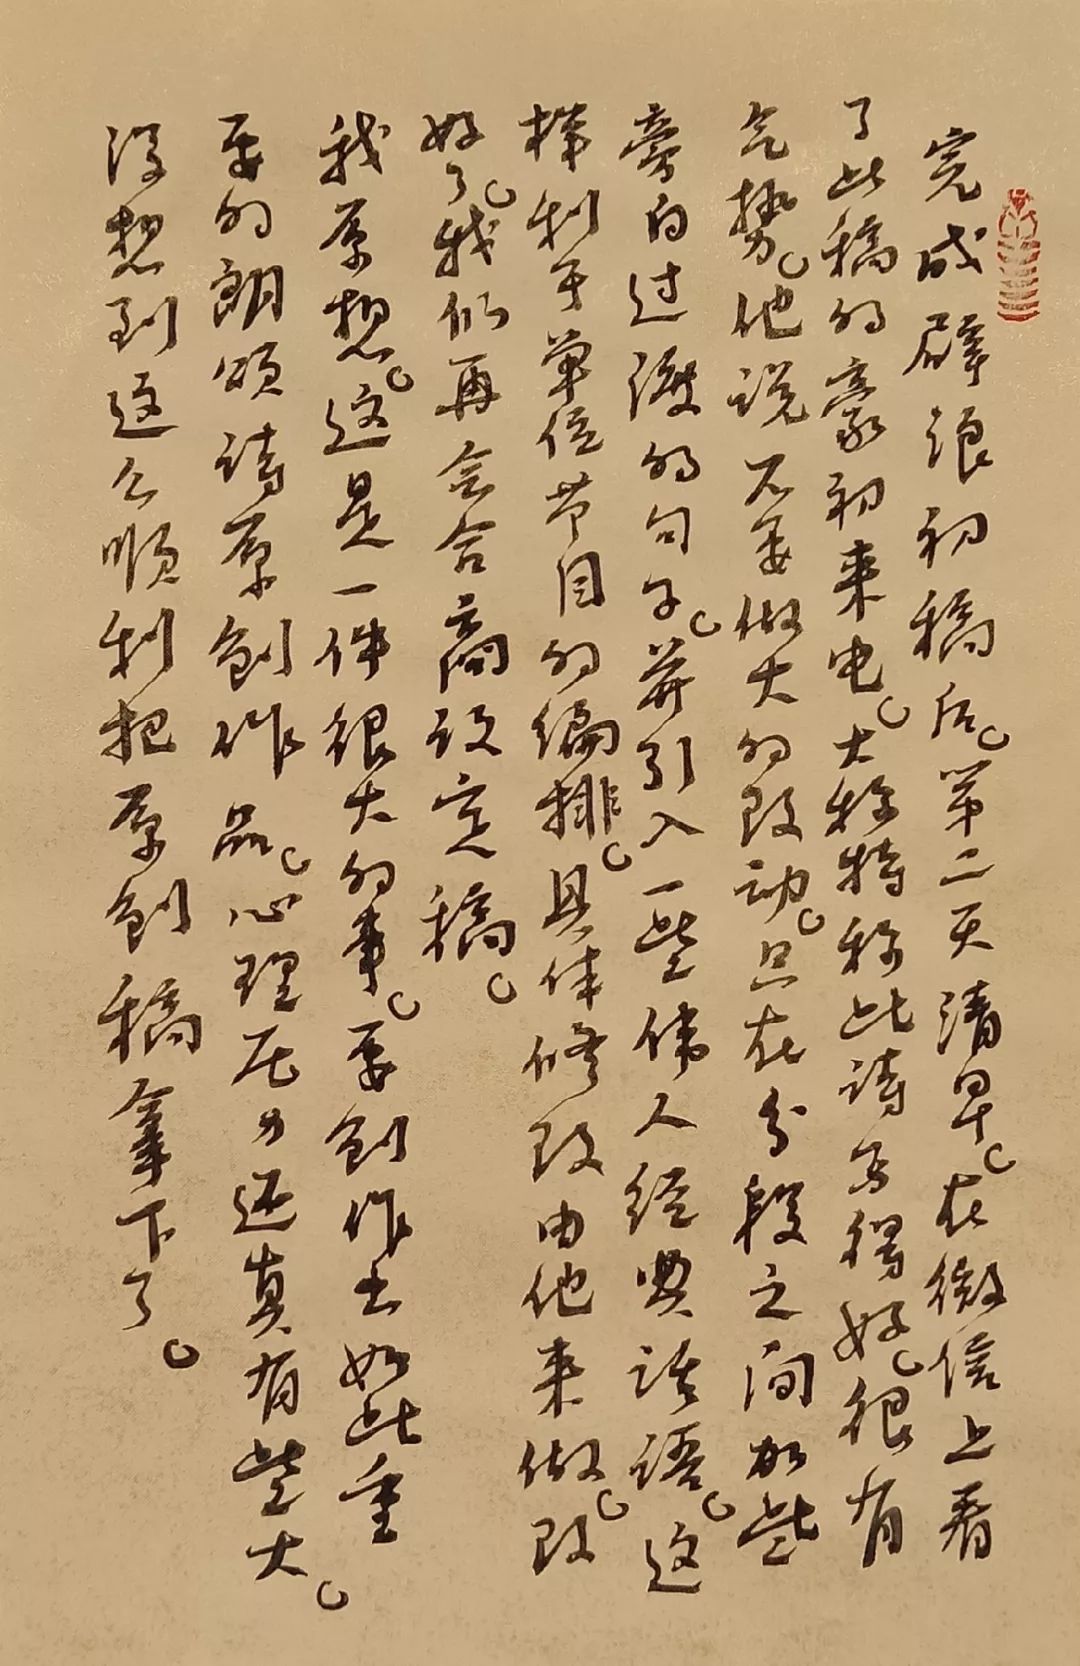 完成劈浪初稿后。第二天清早。在微信上看
了此稿的豪初来电。大称特称此诗写得好。很有
气势。他说不要做大的改动。只在分段之间加些
旁白过渡的句子。并引入一些伟人经典话语。这
样利于单位节目的编排。具体修改由他来做。改
好了。我们再会合商议定稿。
我原想。这是一件很大的事。要创作出如此重
要的朗颂诗原创作品。心理压力还真有些大。
没想到这么顺利把原创稿拿下了。